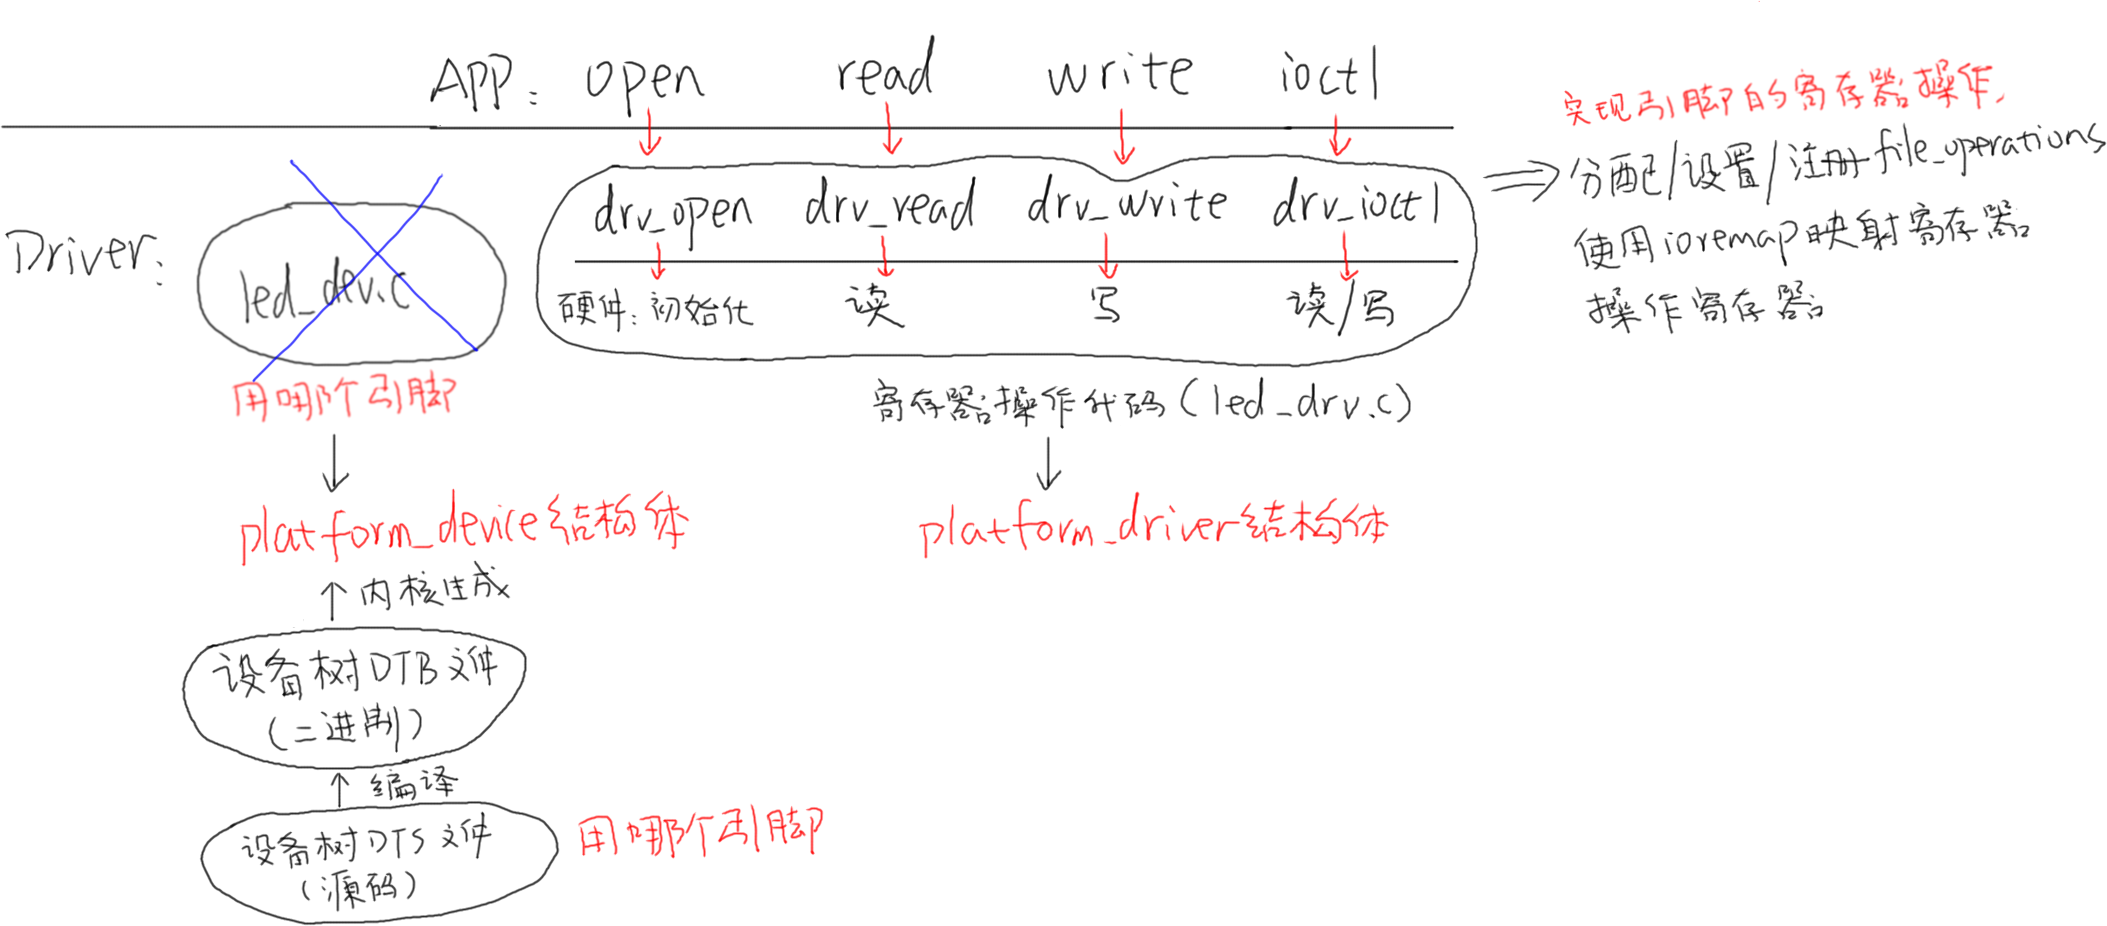 APP: open read write ioctl
实现引脚的寄存器操作,
分配/设置/注册file_operations
使用ioremap映射寄存器
操作寄存器
Driver:
led_dev.c
用哪个引脚
drv_open drv_read drv_write drv_ioctl
硬件:初始化 读 写 读/写
寄存器操作代码(led_drv.c)
platform_device结构体
platform_driver结构体
内核生成
设备树DTB文件
(二进制)
编译
设备树DTS文件
(源码)
用哪个引脚